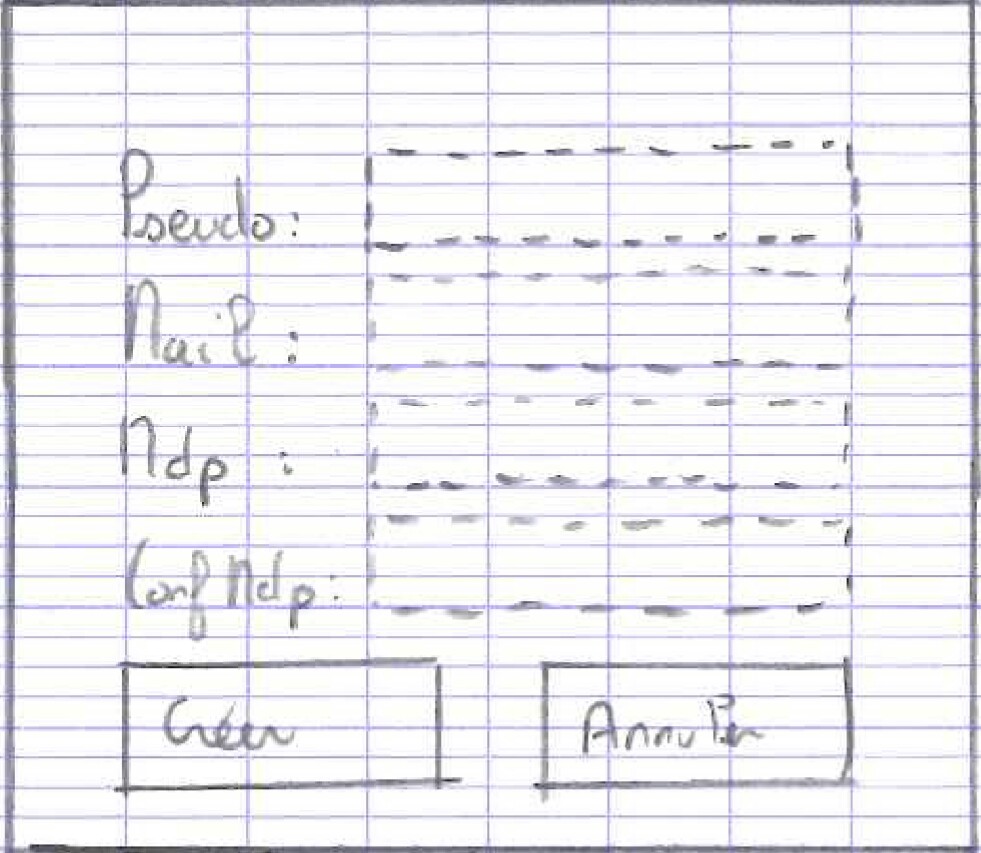 Pseudo:
Mail :
Mdp :
Conf Mdp:
Créer
Annuler